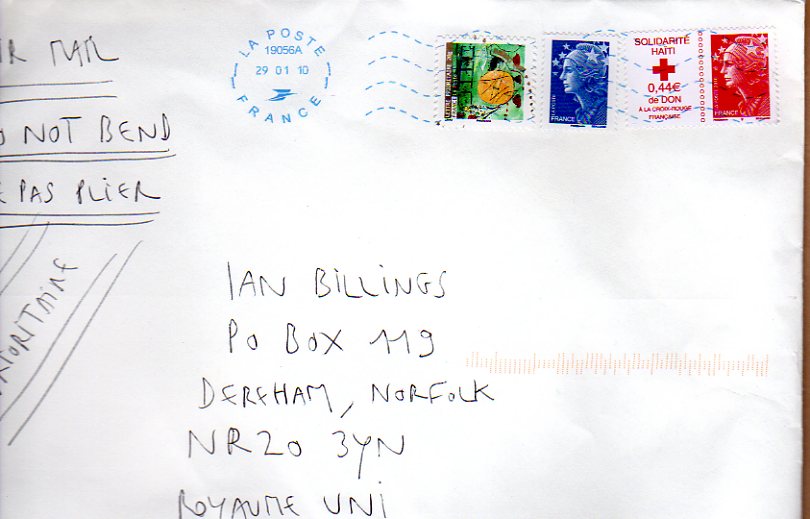 LA POSTE
19056A
29 01 10
FRANCE
SOLIDARITÉ
HAÏTI
0,44€
de DON
À LA CROIX-ROUGE
FRANÇAISE
FRANCE
FRANCE
IR MAIL
O NOT BEND
E PAS PLIER
RIORITAIRE
IAN BILLINGS
PO BOX 119
DEREHAM, NORFOLK
NR20 3YN
ROYAUME UNI